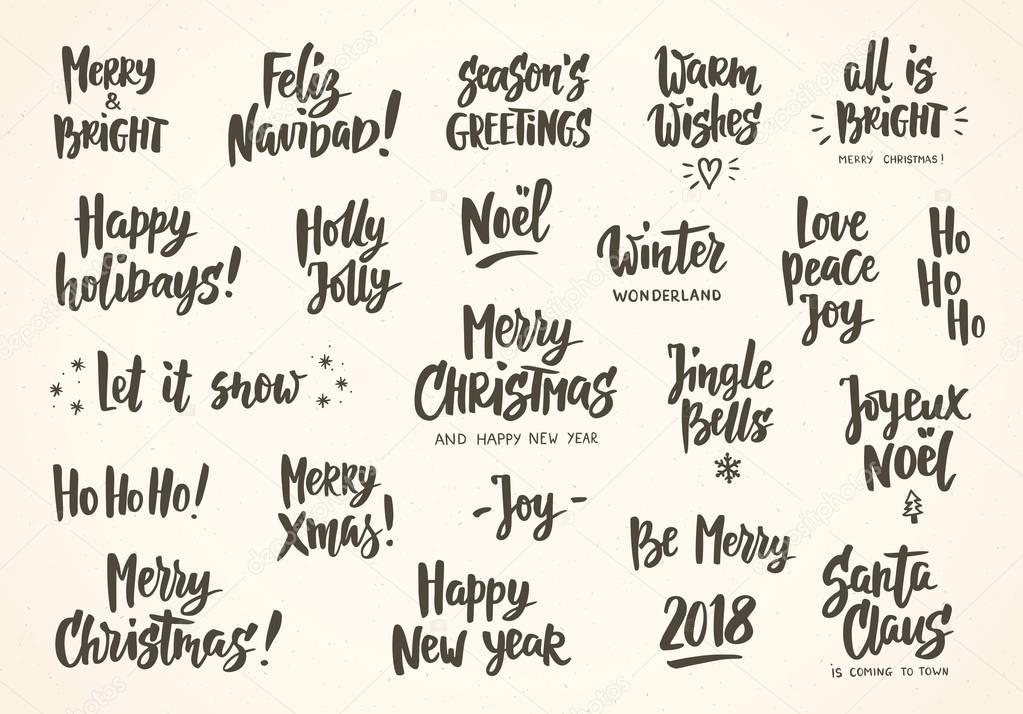 Merry
&
BRiGHT
Feliz
Navidad!
Season's
GREETiNGS
Warm
Wishes
all is
BRiGHT
MERRY CHRISTMAS!
Happy
holidays!
Holly
Jolly
Noël
Winter
WONDERLAND
Love
peace
Joy
Ho
Ho
Ho
Let it snow
Merry
CHRiSTMAS
AND HAPPY NEW YEAR
Jingle
Bells
Joyeux
Noël
Ho Ho Ho!
Merry
Xmas!
-Joy-
Be Merry
Merry
Christmas!
Happy
New year
2018
Santa
Claus
IS COMING TO TOWN
depositphotos
depositphotos
depositphotos
depositphotos